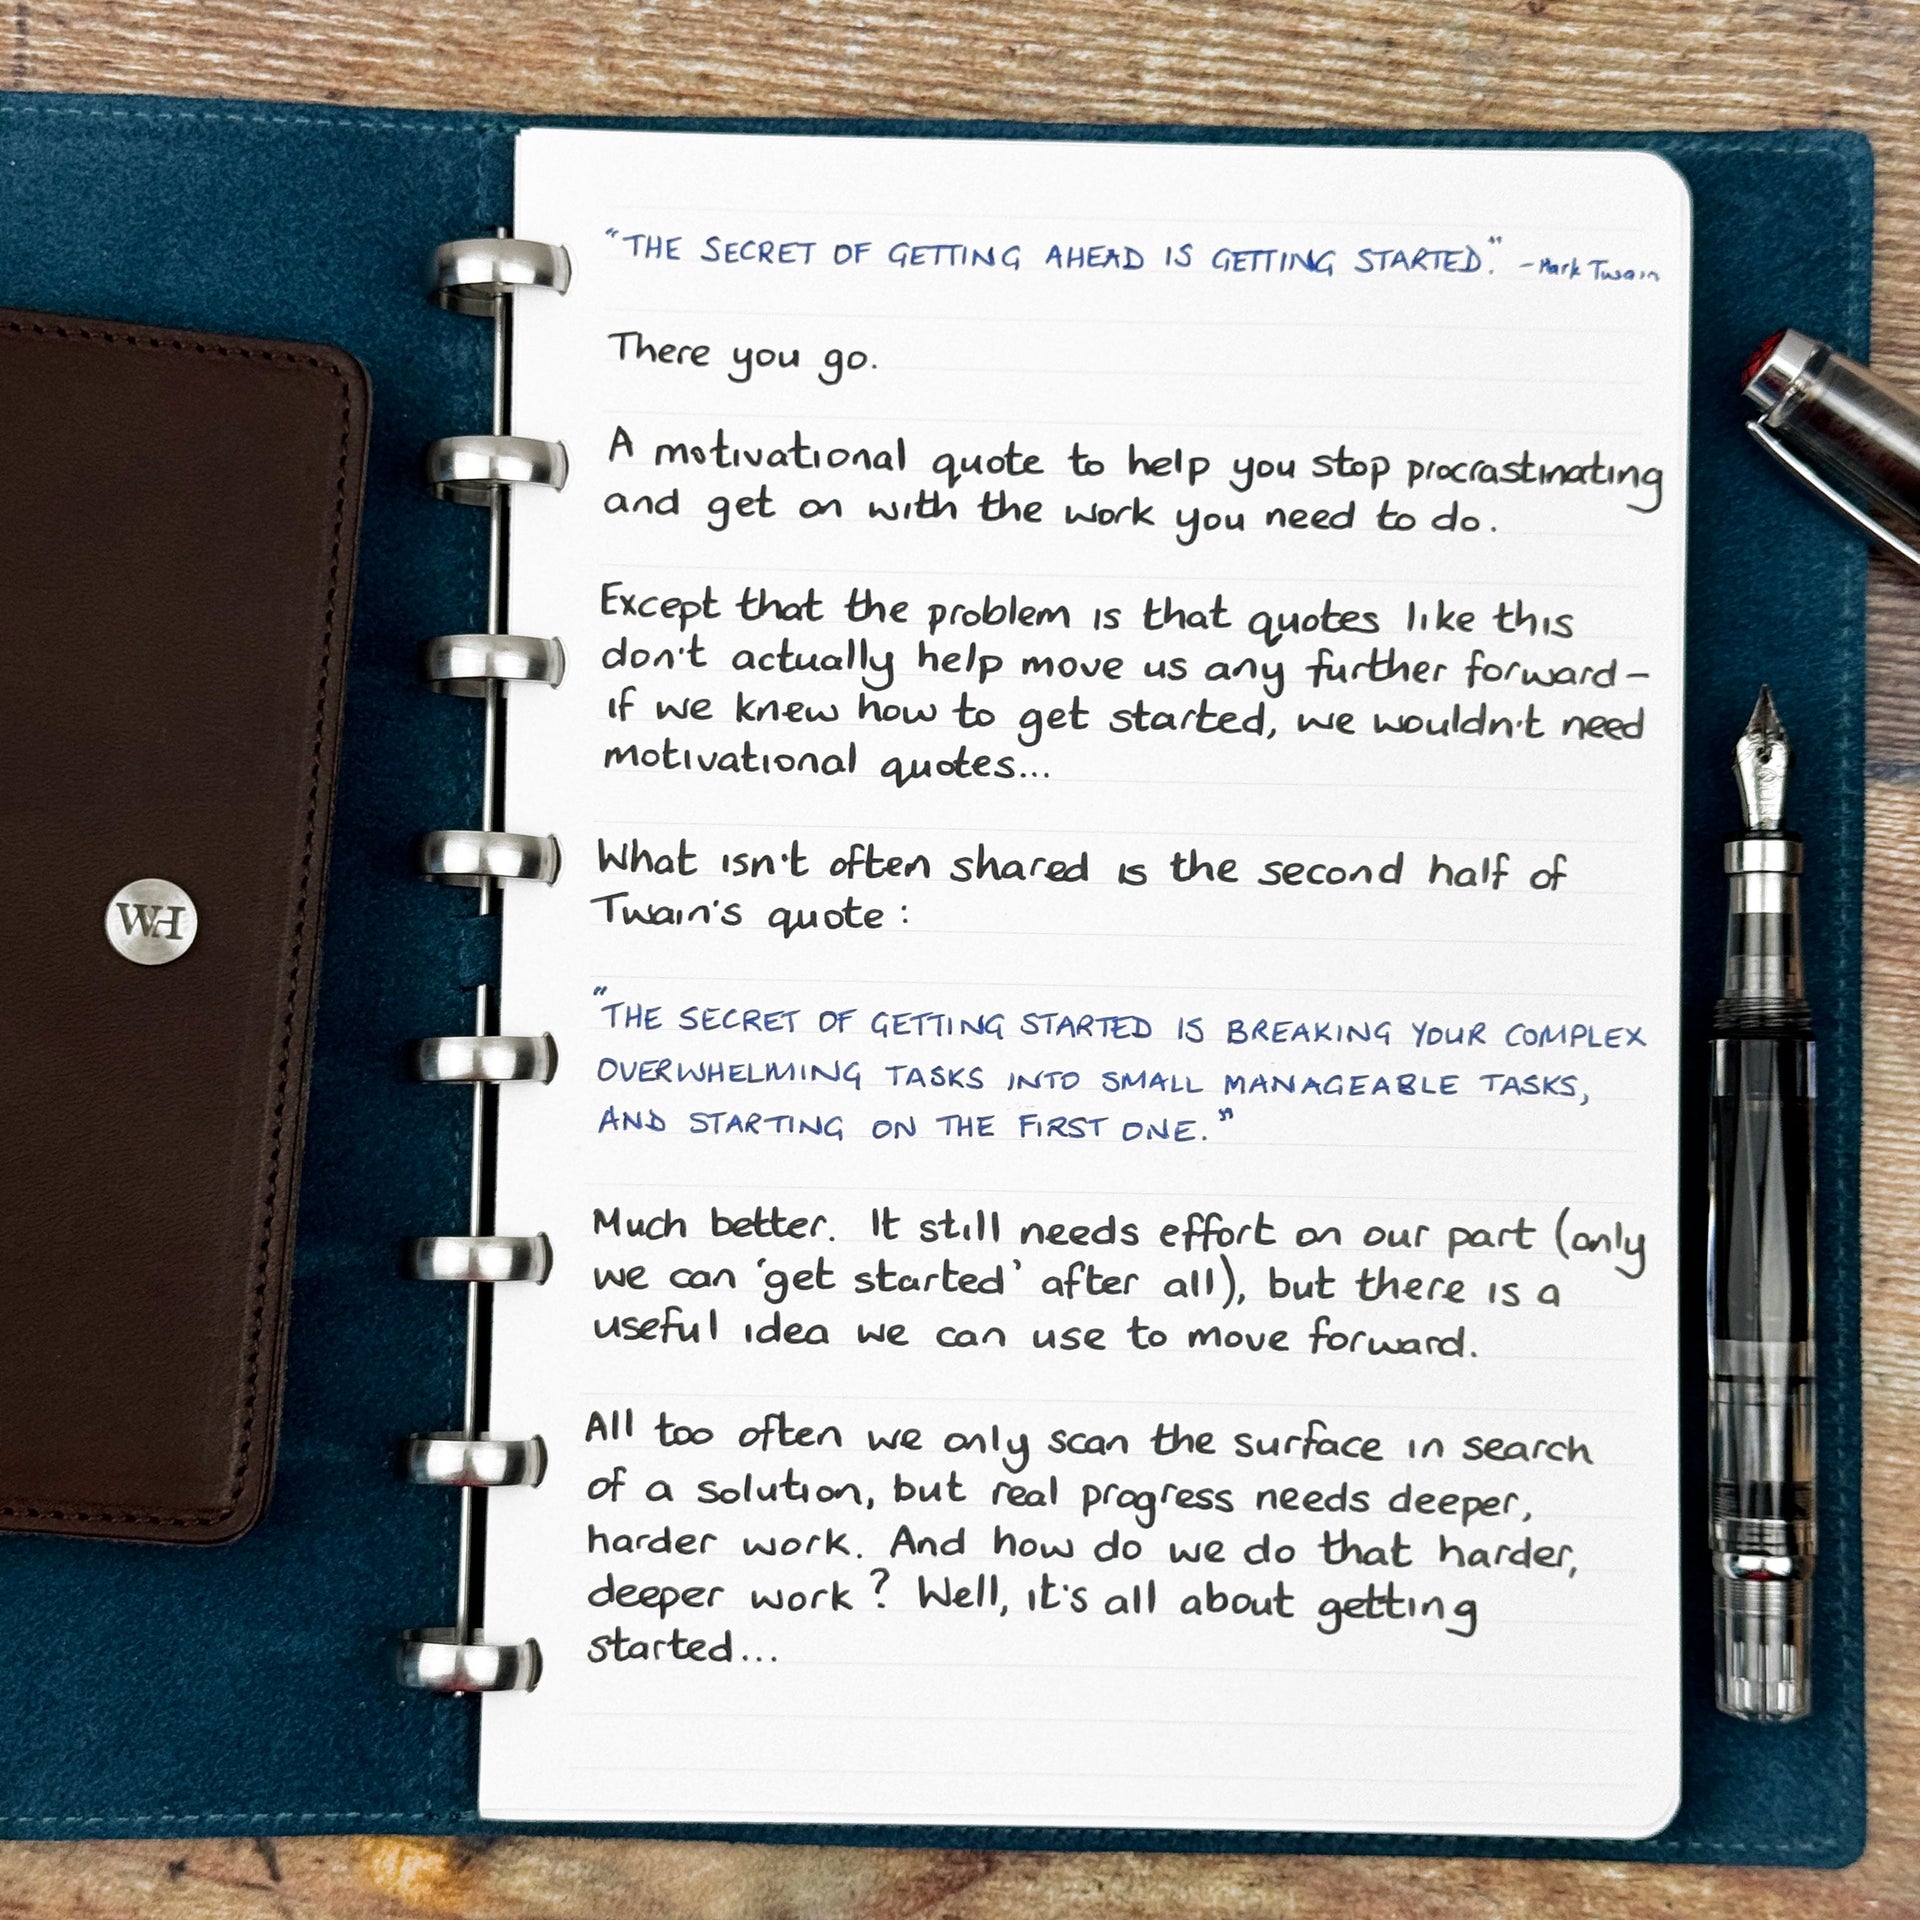 "THE SECRET OF GETTING AHEAD IS GETTING STARTED." - Mark Twain
There you go.
A motivational quote to help you stop procrastinating
and get on with the work you need to do.
Except that the problem is that quotes like this
don't actually help move us any further forward –
if we knew how to get started, we wouldn't need
motivational quotes...
What isn't often shared is the second half of
Twain's quote:
"THE SECRET OF GETTING STARTED IS BREAKING YOUR COMPLEX
OVERWHELMING TASKS INTO SMALL MANAGEABLE TASKS,
AND STARTING ON THE FIRST ONE."
Much better. It still needs effort on our part (only
we can 'get started' after all), but there is a
useful idea we can use to move forward.
All too often we only scan the surface in search
of a solution, but real progress needs deeper,
harder work. And how do we do that harder,
deeper work? Well, it's all about getting
started...
WH